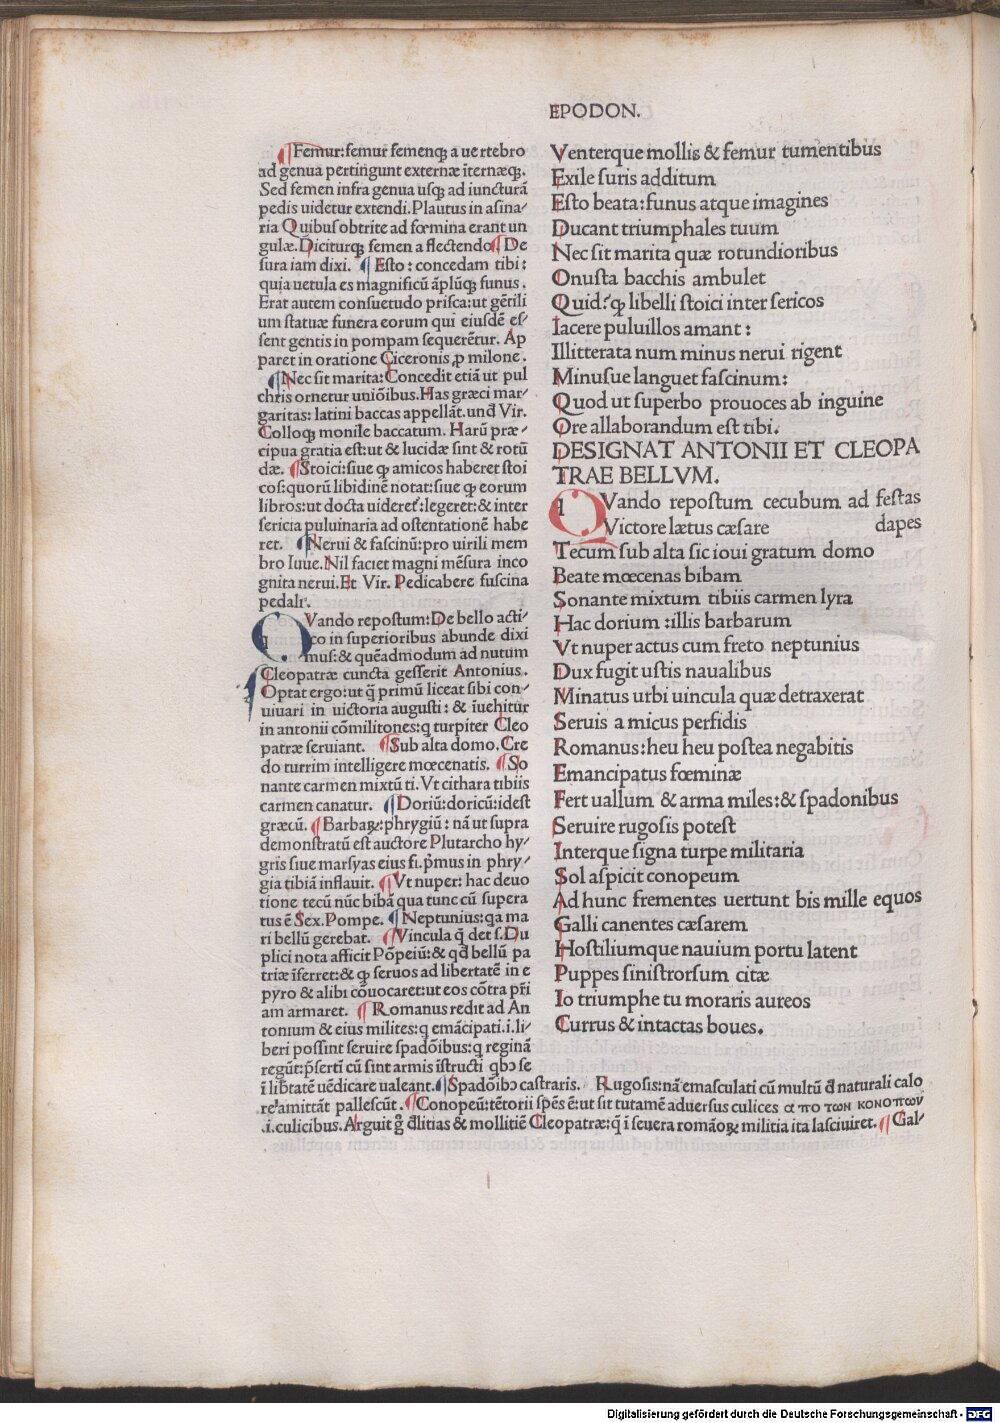 EPODON.
¶Femur:femur femenqȝ a uertebro
ad genua pertingunt externæ īternæqȝ.
Sed femen infra genua usqȝ ad iuncturā
pedis uidetur extendi. Plautus in asina/
ria Quibus obtrite ad fœmina erant un
gulæ. Diciturqȝ femen a flectendo ¶De
sura iam dixi. ¶Esto: concedam tibi:
quia uetula es magnificū āplūqȝ funus.
Erat autem consuetudo prisca:ut gētili
um statuæ funera eorum qui eiusdē es/
sent gentis in pompam sequerētur. Ap
paret in oratione Ciceronis ꝓ milone.
¶Nec sit marita: Concedit etiā ut pul
chris ornetur uniōibus. Has græci mar-
garitas: latini baccas appellāt. und̄ Vir.
Colloqȝ monile baccatum. Harū præ/
cipua gratia est:ut & lucidæ sint & rotū
dæ. ¶Stoici:siue ꝙ amicos haberet stoi
cos:quorū libidinē notat:siue ꝙ eorum
libros:ut docta uideret᷑:legeret:& inter
sericia puluinaria ad ostentationē habe
ret. ¶Nerui & fascinū:pro uirili mem
bro Iuue. Nil faciet magni mēsura inco
gnita nerui. Et Vir. Pedicabere fuscina
pedali.
QVando repostum: De bello acti/
co in superioribus abunde dixi
mus:& quēadmodum ad nutum
Cleopatræ cuncta gesserit Antonius.
Optat ergo:ut q̄ primū liceat sibi con/
uiuari in uictoria augusti: & īuehitur
in antonii cōmilitones:q turpiter Cleo
patræ seruiant. ¶Sub alta domo. Cre
do turrim intelligere mœcenatis. ¶So
nante carmen mixtū ti. Vt cithara tibiis
carmen canatur. ¶Doriū:doricū:idest
græcū. ¶Barbaꝝ:phrygiū: nā ut supra
demonstratū est auctore Plutarcho hy/
gris siue marsyas eius fi. p̄mus in phry/
gia tibiā inflauit. ¶Vt nuper: hac deuo
tione tecū nūc bibā qua tunc cū supera
tus ē Sex. Pompe. ¶Neptunius:qa ma
ri bellū gerebat. ¶Vincula q̄ det s. Du
plici nota afficit Pōpeiū:& qd̄ bellū pa
triæ īferret:& ꝙ seruos ad libertatē in e
pyro & alibi cōuocaret:ut eos cōtra pr̄i
am armaret. ¶Romanus redit ad An
tonium & eius milites:q emācipati.i.li/
beri possint seruire spadōibus:q reginā
regūt:p̄sertī cū sint armis īstructi qbꝰ se
ī lib̄tatē uēdicare ualeant. ¶Spadōibꝰ castraris. Rugosis:nā emasculati cū multū d̄ naturali calo
re amittāt pallescūt. ¶Conopeū:tētorii spēs ē:ut sit tutamē aduersus culices α πο των κονοπων
.i. culicibus. Arguit g̊ d̄litias & mollitiē Cleopatræ:q ī seuera romāoꝝ militia ita lasciuiret. ¶Gal/
Venterque mollis & femur tumentibus
Exile suris additum
Esto beata:funus atque imagines
Ducant triumphales tuum
Nec sit marita quæ rotundioribus
Onusta bacchis ambulet
Quid?ꝙ libelli stoici inter sericos
Iacere puluillos amant:
Illitterata num minus nerui rigent
Minusue languet fascinum:
Quod ut superbo prouoces ab inguine
Ore allaborandum est tibi.
DESIGNAT ANTONII ET CLEOPA
TRAE BELLVM.
QVando repostum cecubum ad festas
Victore lætus cæsare dapes
Tecum sub alta sic ioui gratum domo
Beate mœcenas bibam
Sonante mixtum tibiis carmen lyra
Hac dorium:illis barbarum
Vt nuper actus cum freto neptunius
Dux fugit ustis naualibus
Minatus urbi uincula quæ detraxerat
Seruis amicus perfidis
Romanus:heu heu postea negabitis
Emancipatus fœminæ
Fert uallum & arma miles:& spadonibus
Seruire rugosis potest
Interque signa turpe militaria
Sol aspicit conopeum
Ad hunc frementes uertunt bis mille equos
Galli canentes cæsarem
Hostiliumque nauium portu latent
Puppes sinistrorsum citæ
Io triumphe tu moraris aureos
Currus & intactas boues.
Digitalisierung gefördert durch die Deutsche Forschungsgemeinschaft - DFG